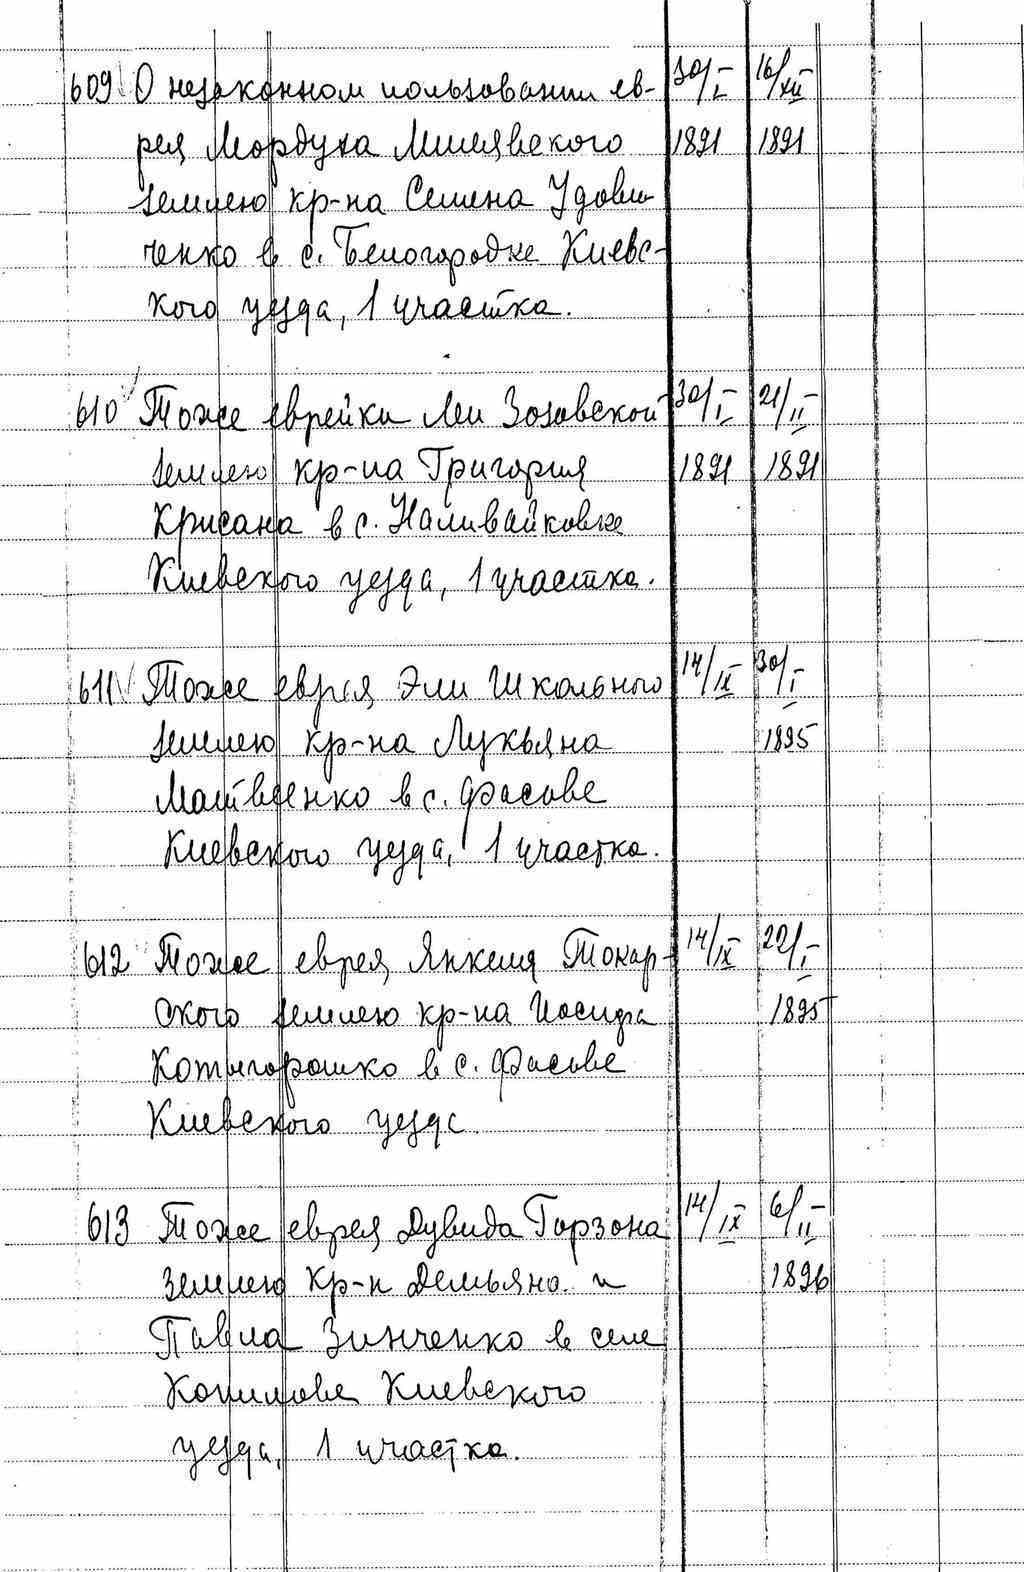 609 О незаконном пользовании ев- 30/I 16/XII
рея Мордуха Милявского 1891 1891
землею кр-на Семена Удови-
ченко в с. Белогородке Киевс-
кого уезда, 1 участка.
610 Тоже еврейки Леи Зозовской 30/I 21/II
землею кр-на Григория 1891 1891
Крисана в с. Наливайковке
Киевского уезда, 1 участка.
611 Тоже еврея Эли Школьного 14/IX 30/I
землею кр-на Лукьяна 1895
Матвеенко в с. Фасове
Киевского уезда, 1 участка.
612 Тоже еврея Янкеля Токар- 14/IX 29/I
ского землею кр-на Иосифа 1895
Котыгорошко в с. Фасове
Киевского уезда
613 Тоже еврея Дувида Горзона 14/IX 6/II
землею кр-н Демьяна и 1896
Павла Зинченко в селе
Копилове Киевского
уезда, 1 участка.